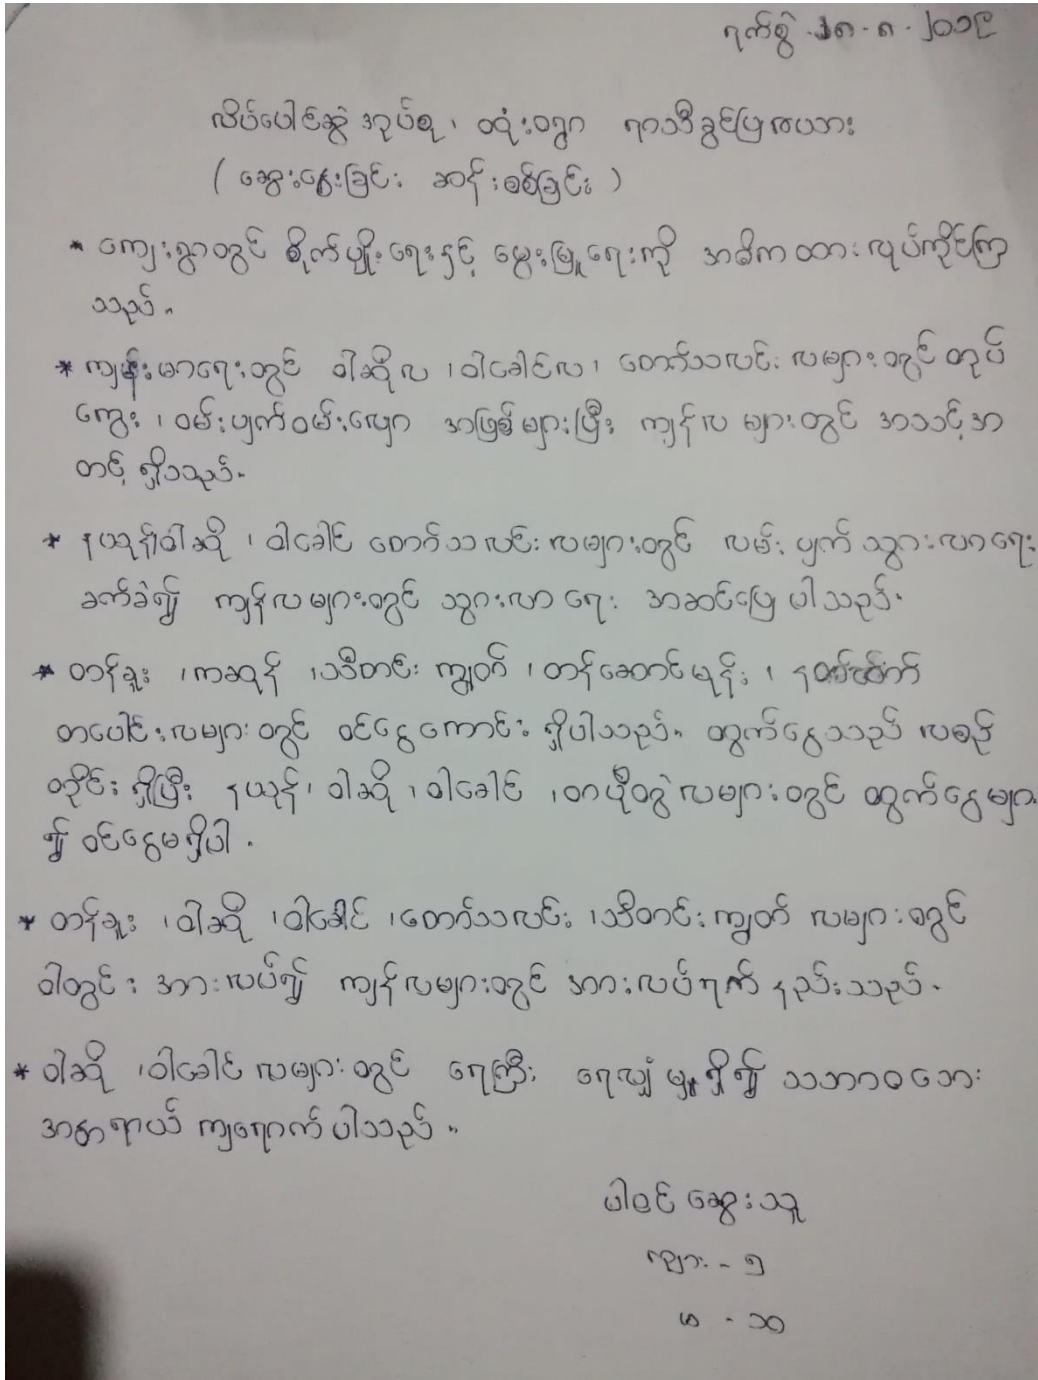 ရက်စွဲ - ၂၈ - ၈ - ၂၀၁၉
လိပ်ပေါင်ဆွဲ အုပ်စု ၊ ထုံးရွာ ရာသီခွင်ပြဇယား
( ဆွေးနွေးခြင်း ဆန်းစစ်ခြင်း )
* ကျေးရွာတွင် စိုက်ပျိုးရေးနှင့် မွေးမြူရေးကို အဓိကထားလုပ်ကိုင်ကြ
သည်။
* ကျန်းမာရေးတွင် ဝါဆိုလ ၊ ဝါခေါင်လ ၊ တော်သလင်း လများတွင် တုပ်
ကွေး ၊ ဝမ်းပျက်ဝမ်းလျော အဖြစ်များပြီး ကျန်လ များတွင် အသင့်အ
တင့် ရှိသည်။
* နယုန်၊ ဝါဆို ၊ ဝါခေါင် တော်သလင်း လများတွင် လမ်းပျက် သွားလာရေး
ခက်ခဲ၍ ကျန်လများတွင် သွားလာရေး အဆင်ပြေ ပါသည်။
* တန်ခူး ၊ ကဆုန် ၊ သီတင်းကျွတ် ၊ တန်ဆောင်မုန်း ၊ နတ်တော်
တပေါင်းလများတွင် ဝင်ငွေကောင်း ရှိပါသည်။ ထွက်ငွေသည် လစဉ်
တိုင်း ရှိပြီး နယုန် ၊ ဝါဆို ၊ ဝါခေါင် ၊ တပို့တွဲ လများတွင် ထွက်ငွေများ
၍ ဝင်ငွေမရှိပါ ။
* တန်ခူး ၊ ဝါဆို ၊ ဝါခေါင် ၊ တော်သလင်း ၊ သီတင်းကျွတ် လများတွင်
ဝါတွင်း အားလပ်၍ ကျန်လများတွင် အားလပ်ရက် နည်းသည်။
* ဝါဆို ၊ ဝါခေါင် လများတွင် ရေကြီး ရေလျှံ မှု ရှိ၍ သဘာဝဘေး
အန္တရာယ် ကျရောက်ပါသည် ။
ပါဝင် ဆွေးသူ
ကျား - ၅
မ - ၁၀